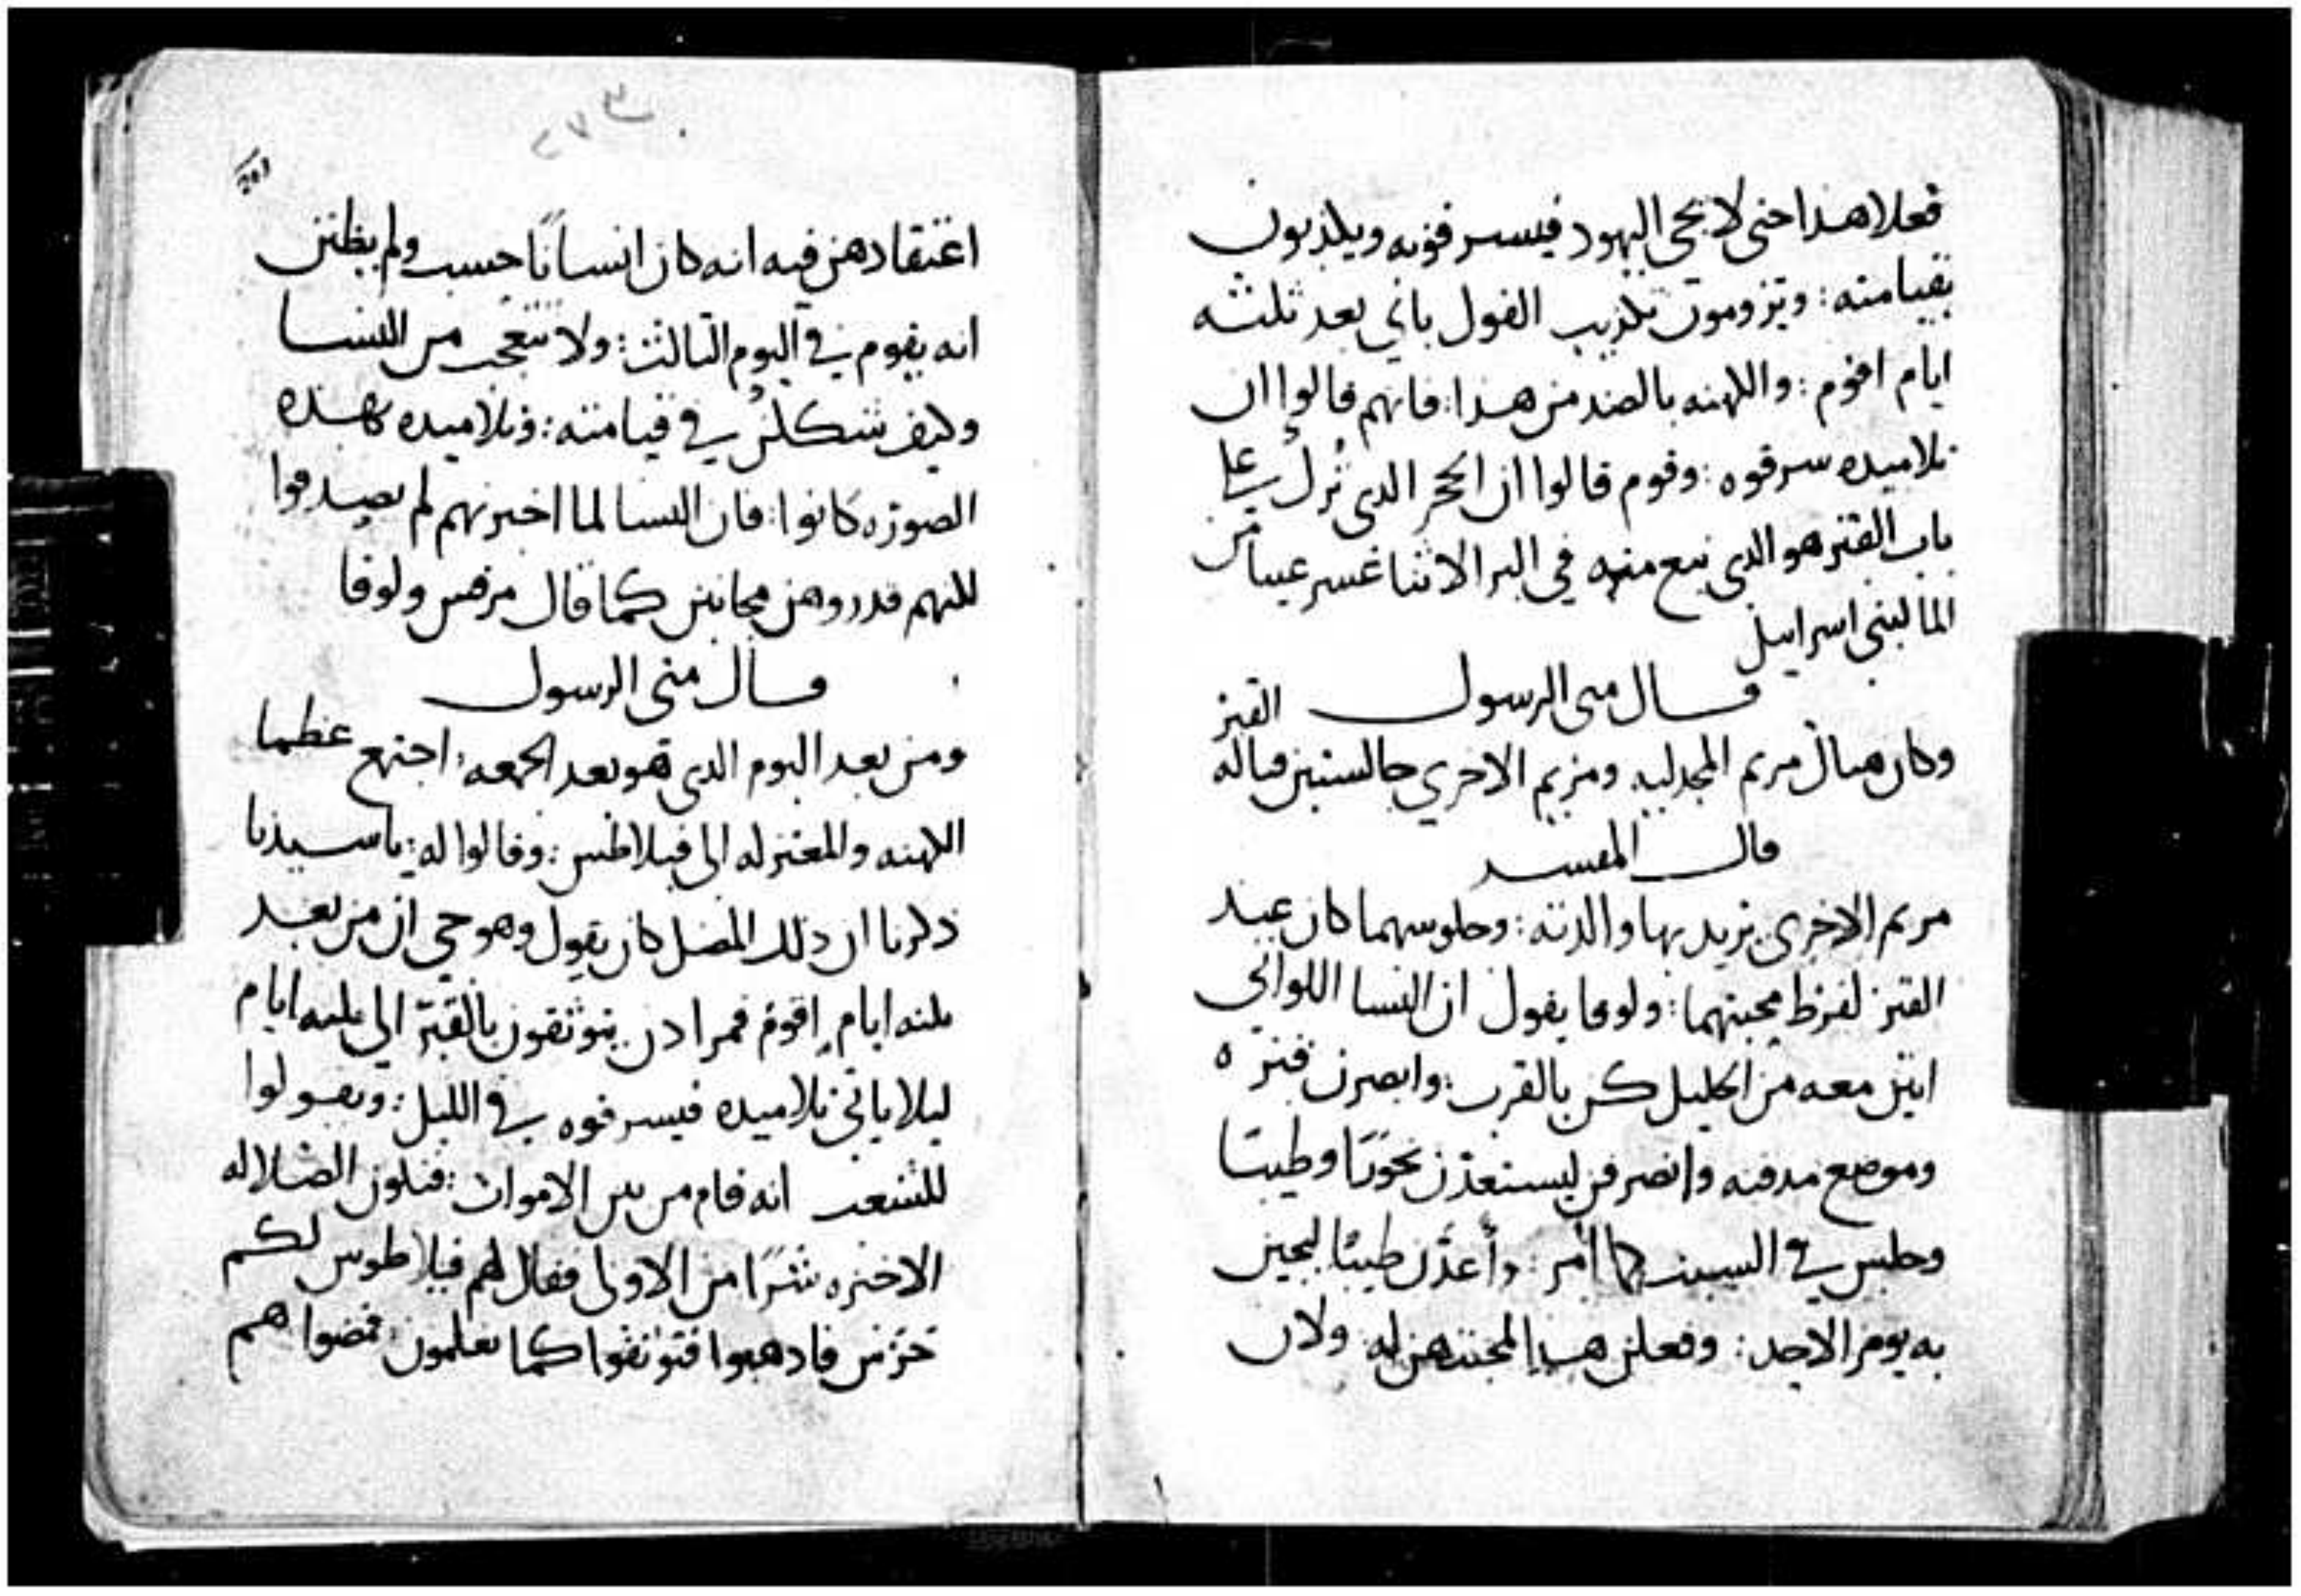 فعلا هذا حتى لا يجى اليهود فيسرقونه ويكذبون
بقيامته: ويرومون تكذيب القول باني بعد ثلثه
ايام اقوم: والكهنه بالضد من هذا: فانهم قالوا ان
تلاميده سرقوه: وقوم قالوا ان الحجر الدى تُرك على
باب القبر هو الدى نبع منه في البر الاثنا عشر عينا من
الما لبنى اسراييل
قال متى الرسول
وكان هناك مريم المجدليه ومريم الاخرى جالستين قباله القبر
قال المفسر
مريم الاخرى يريد بها والدته: وجلوسهما كان عند
القبر لفرط محبتهما: ولوقا يقول ان النسا اللواتي
اتين معه من الجليل كن بالقرب: وابصرن قبره
وموضع مدفنه وانصرفن ليستعدن بخورًا وطيبًا
وجلسن في السبت كما أمر: وأعدَّن طيبًا ليجين
به يوم الاحد: وفعلن هدا لمحبتهن له ولان
ن ٢٧٣
203
اعتقادهن فيه انه كان انسانًا حسب ولم يظنن
انه يقوم في اليوم الثالث: ولا تتعجب من النسا
وكيف شككن في قيامته: وتلاميده بهده
الصوره كانوا: فان النسا لما اخبرنهم لم يصدقوا
لكنهم قدروهن مجانين كما قال مرقس ولوقا
قال متى الرسول
ومن بعد اليوم الدى هو بعد الجمعه: اجتمع عظما
الكهنه والمعتزله الى فيلاطس: وقالوا له: يا سيدنا
ذكرنا ان ذلك المضل كان يقول وهو حي ان من بعد
ثلثه ايام اقوم فمر ادن يتوثقون بالقبر الى ثلثه ايام
ليلا ياتي تلاميده فيسرقوه في الليل: ويقولوا
للشعب انه قام من بين الاموات: فتكون الضلاله
الاخيره شرًا من الاولى فقال لهم فيلاطوس لكم
حرس فادهبوا فتوثقوا كما تعلمون: فمضوا هم